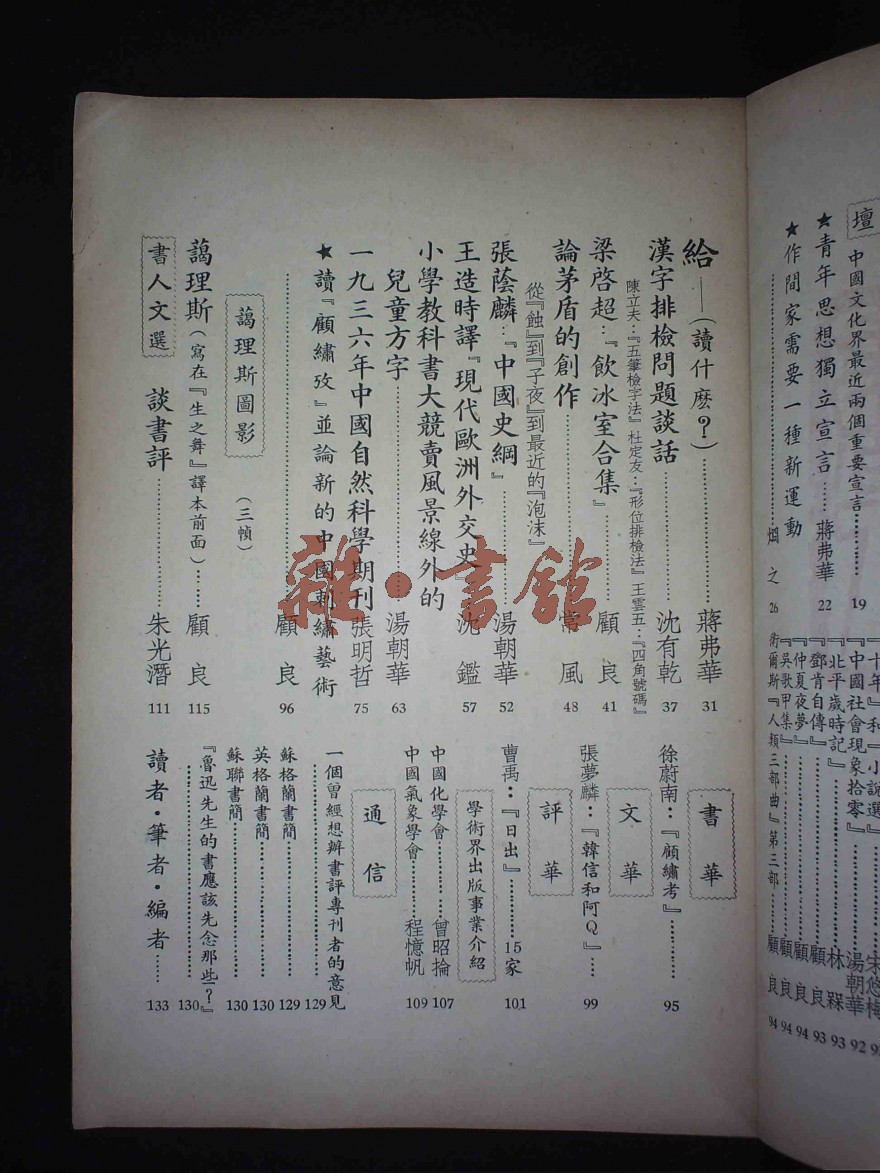 壇
中國文化界最近兩個重要宣言…………19
★青年思想獨立宣言……蔣弗華 22
★作間家需要一種新運動
……………………烟之 26
『十年』和『小說選』
『中國社會現象拾零』……………湯朝華 92
『北平歲時記』……………林 槑 93
『鄧肯自傳』……………顧 良 93
『仲夏夜夢』……………顧 良 94
『吳歌甲集』……………顧 良 94
衛爾斯『人類三部曲』第三部……顧 良 94
給——(讀什麽?)……………蔣弗華 31
漢字排檢問題談話……………沈有乾 37
陳立夫:『五筆檢字法』杜定友:『形位排檢法』王雲五:『四角號碼』
梁啓超:『飲冰室合集』……顧 良 41
論茅盾的創作……………常 風 48
從『蝕』到『子夜』到最近的『泡沫』
張蔭麟:『中國史綱』……………湯朝華 52
王造時譯『現代歐洲外交史』沈 鑑 57
小學教科書大競賣風景線外的
兒童方字……………湯朝華 63
一九三六年中國自然科學期刊 張明哲 75
★讀『顧繡攷』並論新的中國刺繡藝術
……………………顧 良 96
藹理斯圖影
(三幀)
藹理斯(寫在『生之舞』譯本前面)……顧 良 115
書人文選
談書評……………朱光潛 111
書華
徐蔚南:『顧繡考』…………95
文華
張夢麟:『韓信和阿Q』……99
評華
曹禹:『日出』………15家 101
學術界出版事業介紹
中國化學會……………曾昭掄 107
中國氣象學會……………程憶帆 109
通信
一個曾經想辦書評專刊者的意見
……………………129
蘇格蘭書簡……………129
英格蘭書簡……………130
蘇聯書簡……………130
『魯迅先生的書應該先念那些?』
……………………130
讀者・筆者・編者……133
雜・書館